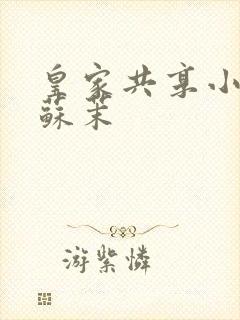 皇家共享小
蘇茉
游紫憐